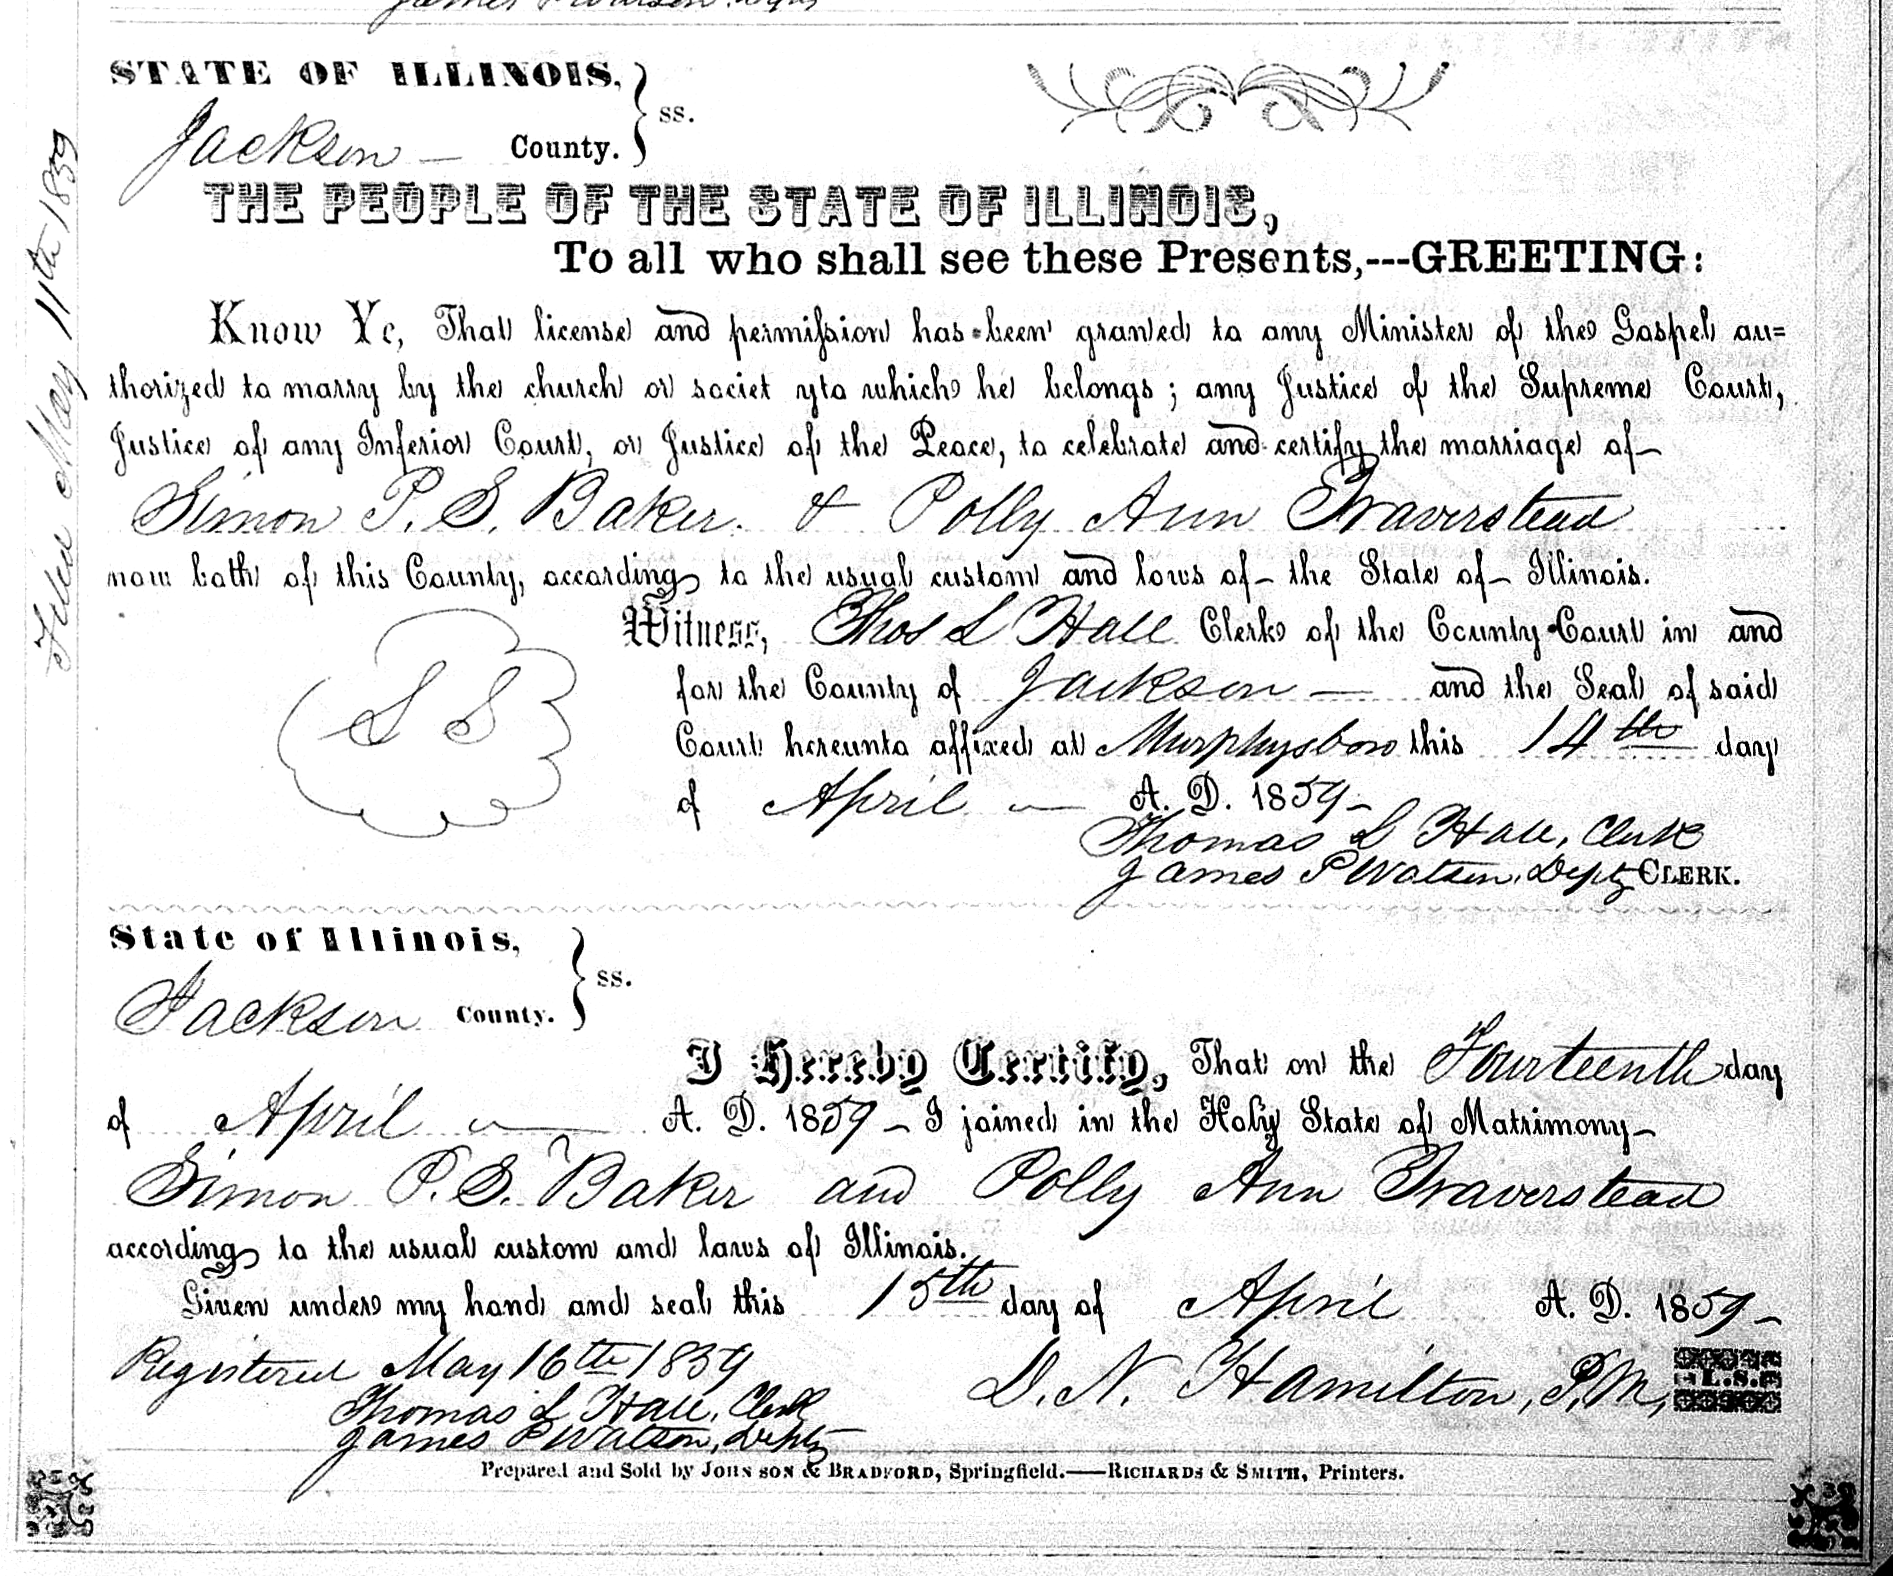 STATE OF ILLINOIS,
Jackson — County. } ss.
THE PEOPLE OF THE STATE OF ILLINOIS,
To all who shall see these Presents,---GREETING:
Know Ye, That license and permission has been granted to any Minister of the Gospel au=
thorized to marry by the church or societ yto which he belongs; any Justice of the Supreme Court,
Justice of any Inferior Court, or Justice of the Peace, to celebrate and certify the marriage of
Simon P. S. Baker. & Polly Ann Traverstead
now both of this County, according to the usual custom and laws of the State of Illinois.
Witness, Thos L Hall Clerk of the County Court in and
for the County of Jackson — and the Seal of said
Court hereunto affixed at Murphysboro this 14th day
of April — A. D. 1859
Thomas L Hall, Clerk
James P Watson, Depty CLERK.
L S
Filed May 11th 1859
State of Illinois,
Jackson County. } ss.
I Hereby Certify, That on the Fourteenth day
of April — A. D. 1859 I joined in the Holy State of Matrimony
Simon P. S. Baker and Polly Ann Traverstead
according to the usual custom and laws of Illinois.
Given under my hand and seal this 15th day of April A. D. 1859
Registered May 16th 1859 D. N. Hamilton, P. M, L.S.
Thomas L Hall, Clerk
James P Watson, Depty
Prepared and Sold by JOHNSON & BRADFORD, Springfield.——RICHARDS & SMITH, Printers.